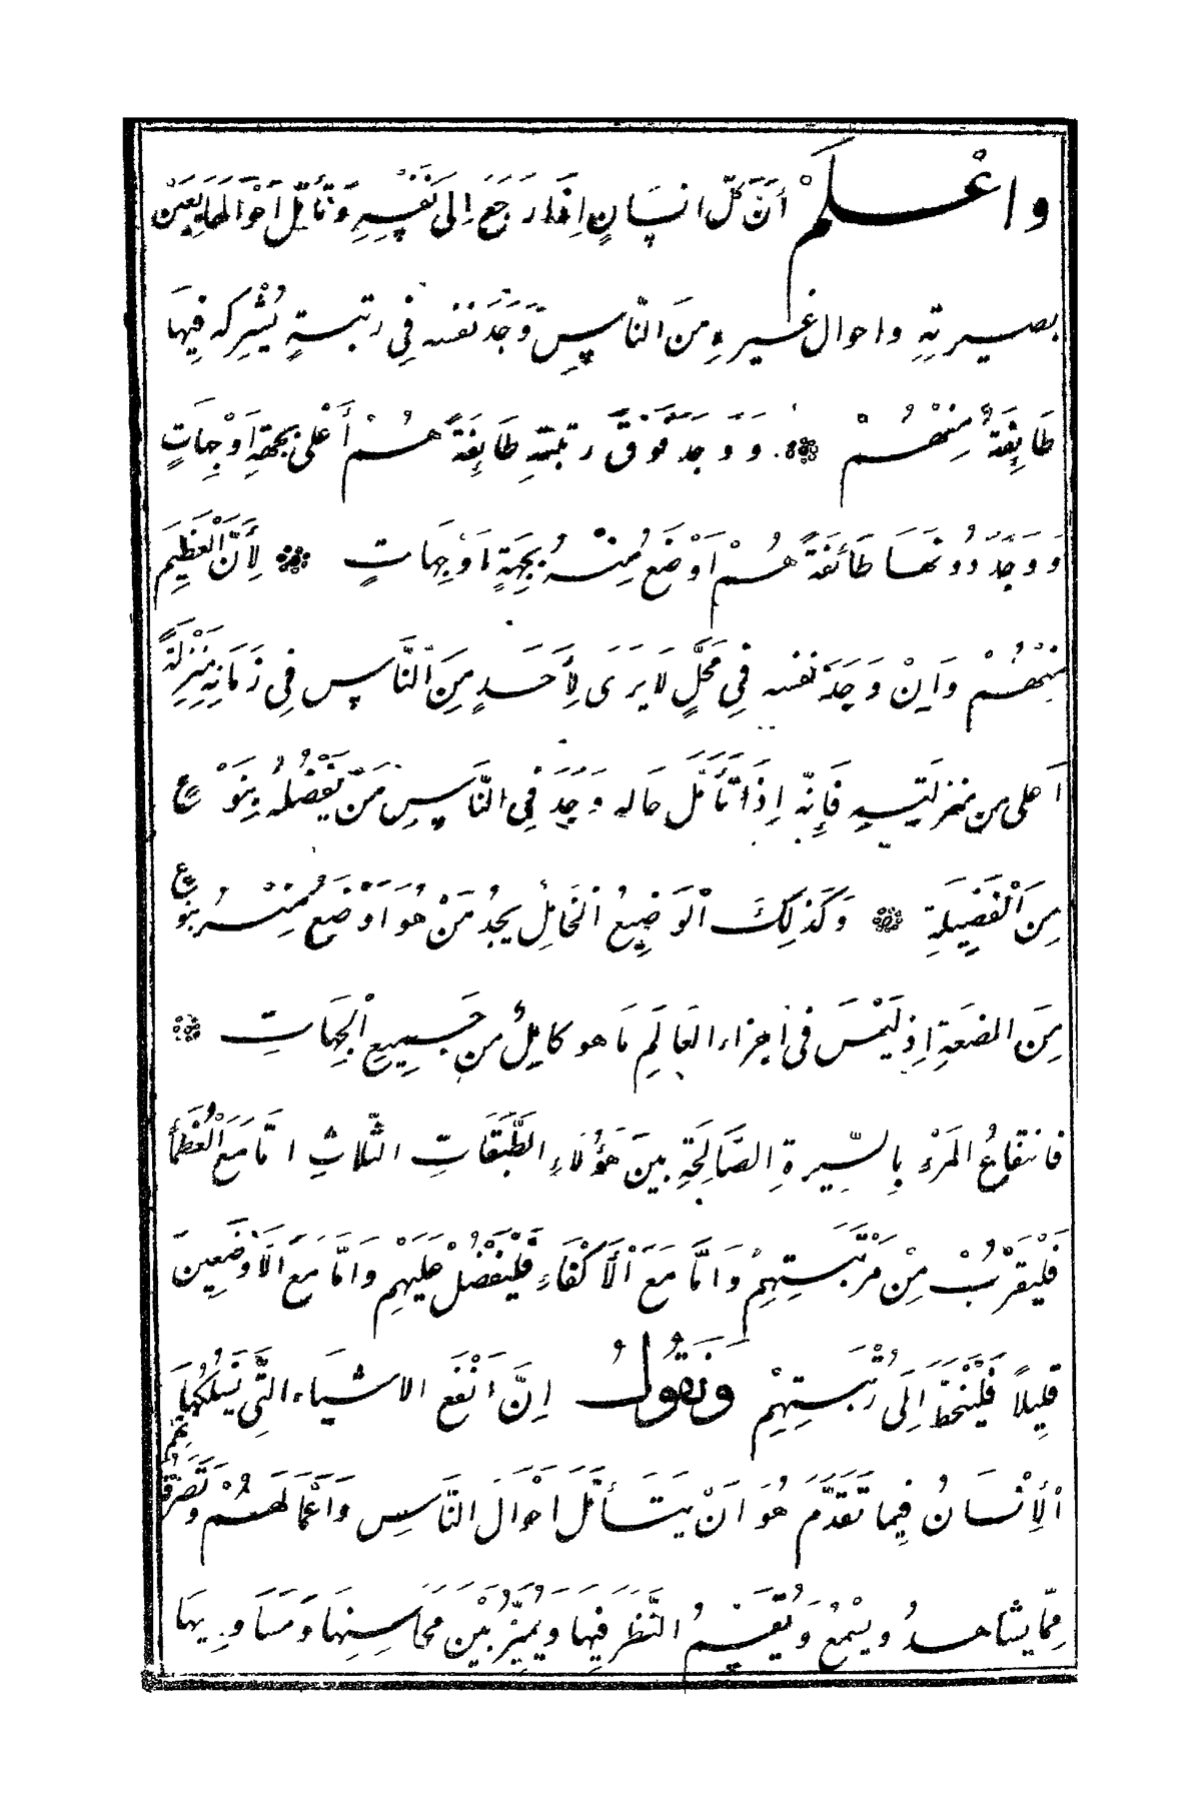 واعْلَمْ أَنَّ كُلَّ انسَانٍ اِذَا رَجَعَ اِلى نَفْسِهِ وَتَأَمَّلَ اَحْوَالَهَا بِعَيْنِ
بصيرتِهِ واحوال غيرهِ مِنَ النَّاسِ وَجَدَ نفسه فِي رتبةٍ يُشْرِكه فِيهَا
طَائِفَةٌ مِنْهُمْ ۞ وَوَجَدَ فَوْقَ رتبتهِ طَائِفَةً هُمْ أَعْلى بجهةٍ اَوْجِهَاتٍ
وَوَجَدَ دُونهَا طَائفَةً هُمْ اَوْضَعُ مِنْهُ بِجِهَةٍ اَوْجِهَاتٍ ۞ لِأَنَّ الْعَظِيمَ
مِنْهُمْ وَاِنْ وَجَدَ نفسه فِي مَحَلٍّ لَا يَرَى لِأَحَدٍ مِنَ النَّاسِ فِى زَمَانِهِ مَنْزِلَةً
اَعلى من منزلَتِهِ فَإِنَّه اِذَا تَأَمَّلَ حَاله وَجَدَ فِى النَّاسِ مَنْ يَفْضُلُهُ بِنَوْعٍ
مِنَ الْفَضِيلَةِ ۞ وَكَذلِكَ الْوَضِيعُ الْخَامِلُ يَجِدُ مَنْ هُوَ اَوْضَعُ مِنْهُ بنوعٍ
مِنَ الضعَةِ اِذ لَيْسَ فى اَجزاء العَالَمِ مَا هو كامِلٌ من جَمِيعِ الْجِهَاتِ ۞
فانتفاعُ المَرْءِ بِالسِّيرةِ الصَّالِحَةِ بينَ هَؤُلَاءِ الطَّبَقَاتِ الثَّلَاثِ امَّا مَعَ الْعُظَمَا
فَلْيَقْرُبْ مِنْ مَرْتَبَتِهِمْ وَامَّا مَعَ الْاَكْفَاءِ فَلْيَفْضُلْ عَلَيْهِمْ وَامَّا مَعَ الْاَوْضَعِينَ
قَلِيلاً فَلْيَنْحَطَّ اِلَى رُتْبَتِهِمْ وَنَقُولُ اِنَّ اَنْفَعَ الاشْيَاء الَّتِي يَسْلُكُهَا
الْأِنْسَانُ فِيما تَقَدَّمَ هُوَ اَنْ يَتَأَمَّلَ اَحْوَالَ النَّاسِ وَاَعْمَالَهُمْ وَتَصَرُّفَهُمْ
مِمَّا يشاهدُ ويَسْمَعُ وَيُقِيمُ النَّظَرَ فِيهَا وَيُمَيِّزُ بَيْنَ مَحَاسِنِهَا وَمَسَاوِيهَا